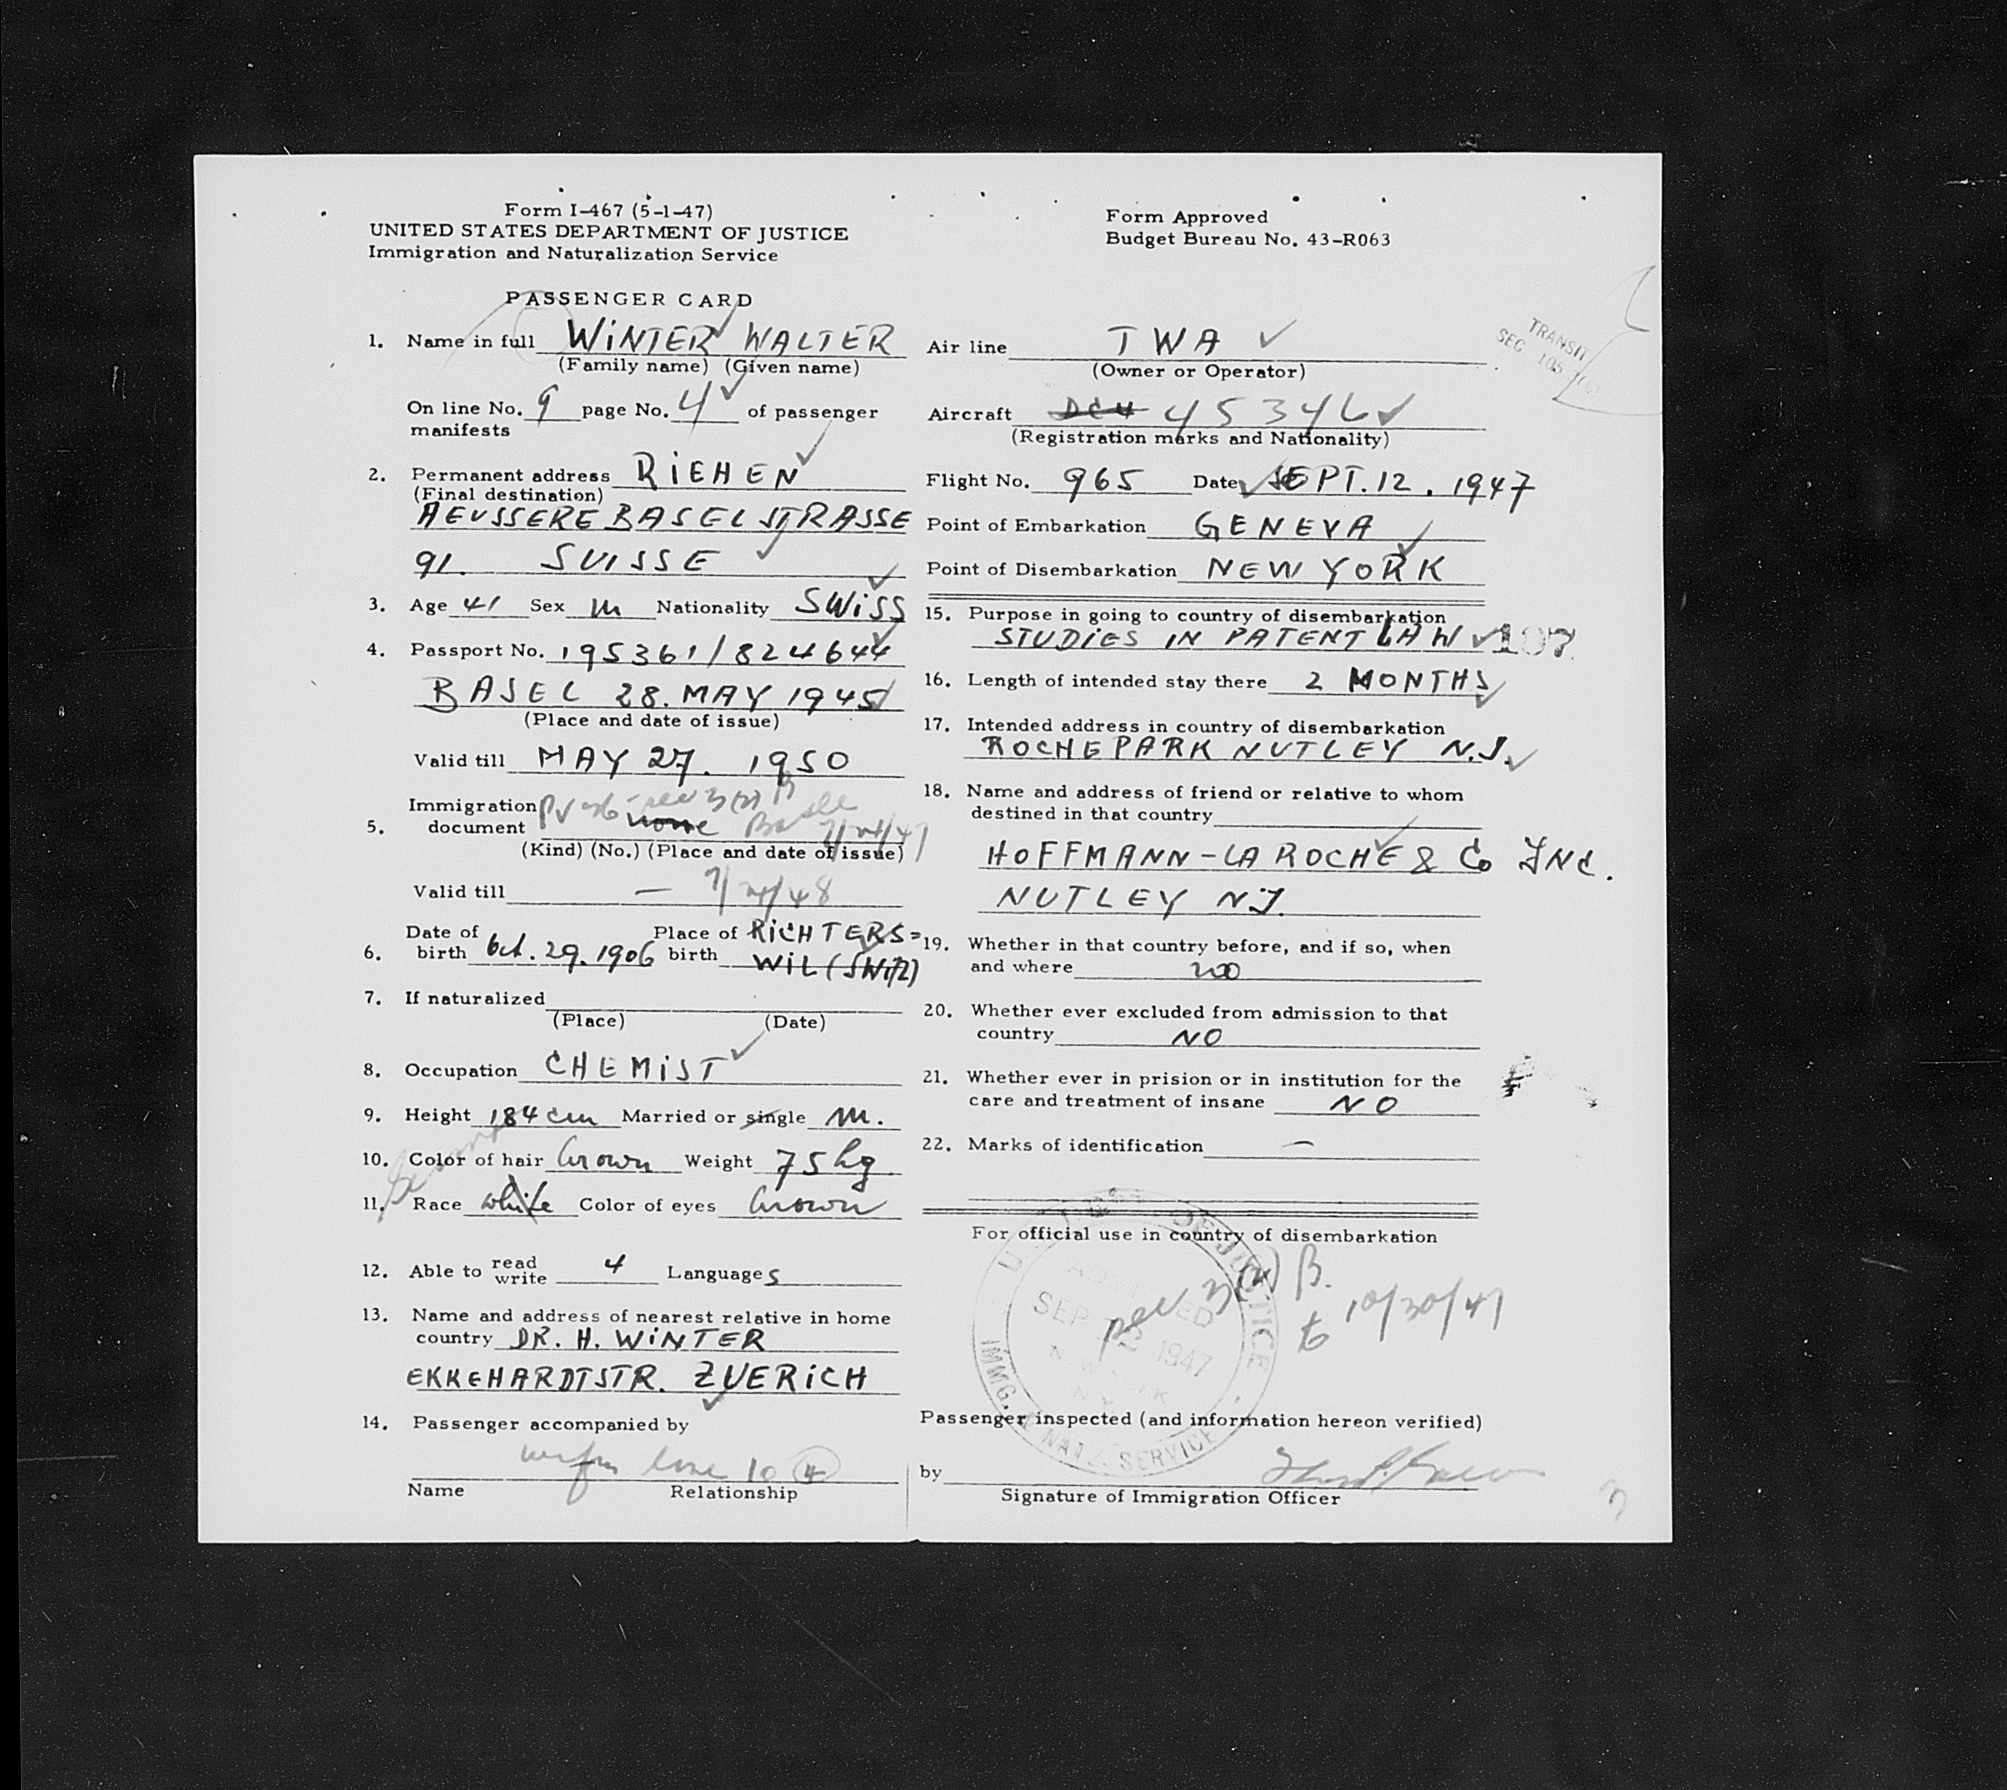 Form I-467 (5-1-47)
UNITED STATES DEPARTMENT OF JUSTICE
Immigration and Naturalization Service
Form Approved
Budget Bureau No. 43-R063
PASSENGER CARD
1. Name in full WINTER WALTER
(Family name) (Given name)
On line No. 9 page No. 4 of passenger
manifests
2. Permanent address RIEHEN
(Final destination)
AEUSSERE BASELSTRASSE
91. SUISSE
3. Age 41 Sex m Nationality SWISS
4. Passport No. 195361/824644
BASEL 28. MAY 1945
(Place and date of issue)
Valid till MAY 27. 1950
Immigration
5. document none
(Kind) (No.) (Place and date of issue)
Valid till —
Date of Place of RICHTERS=
6. birth Oct. 29. 1906 birth WIL (SWITZ)
7. If naturalized
(Place) (Date)
8. Occupation CHEMIST
9. Height 184 cm Married or single m.
10. Color of hair brown Weight 75 kg
11. Race white Color of eyes brown
12. Able to read write 4 Languages
13. Name and address of nearest relative in home
country DR. H. WINTER
EKKEHARDTSTR. ZUERICH
14. Passenger accompanied by
line 10 4
Name Relationship
Air line TWA
(Owner or Operator)
Aircraft DC4 45346
(Registration marks and Nationality)
Flight No. 965 Date SEPT. 12. 1947
Point of Embarkation GENEVA
Point of Disembarkation NEW YORK
15. Purpose in going to country of disembarkation
STUDIES IN PATENT LAW
16. Length of intended stay there 2 MONTHS
17. Intended address in country of disembarkation
ROCHEPARK NUTLEY N.J.
18. Name and address of friend or relative to whom
destined in that country
HOFFMANN-LA ROCHE & Co INC.
NUTLEY NJ.
19. Whether in that country before, and if so, when
and where no
20. Whether ever excluded from admission to that
country NO
21. Whether ever in prision or in institution for the
care and treatment of insane NO
22. Marks of identification —
For official use in country of disembarkation
3(2) B.
10/30/47
SEP 12 1947
IMMG. & NATZ. SERVICE
Passenger inspected (and information hereon verified)
by
Signature of Immigration Officer
TRANSIT
SEC